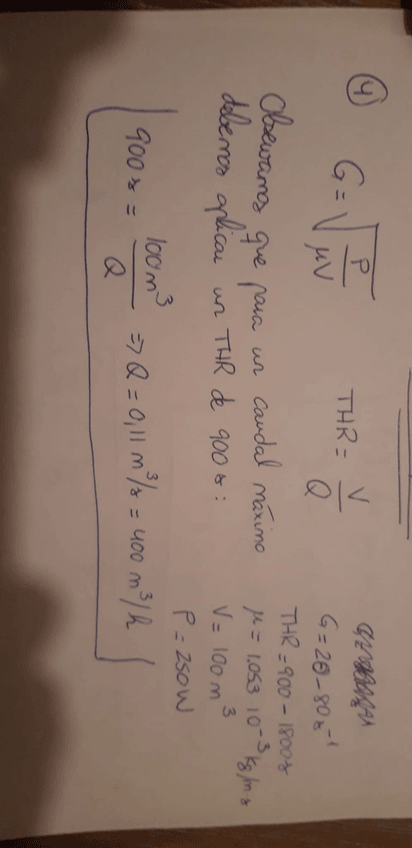 4
G = √(P/μV)
THR = V/Q
G = 20 - 80 s⁻¹
THR = 900 - 1800 s
μ = 1.053 10⁻³ kg/m·s
V = 100 m³
P = 250 W
Observamos que para un caudal máximo
debemos aplicar un THR de 900 s :
900 s = 100 m³/Q => Q = 0,11 m³/s = 400 m³/h